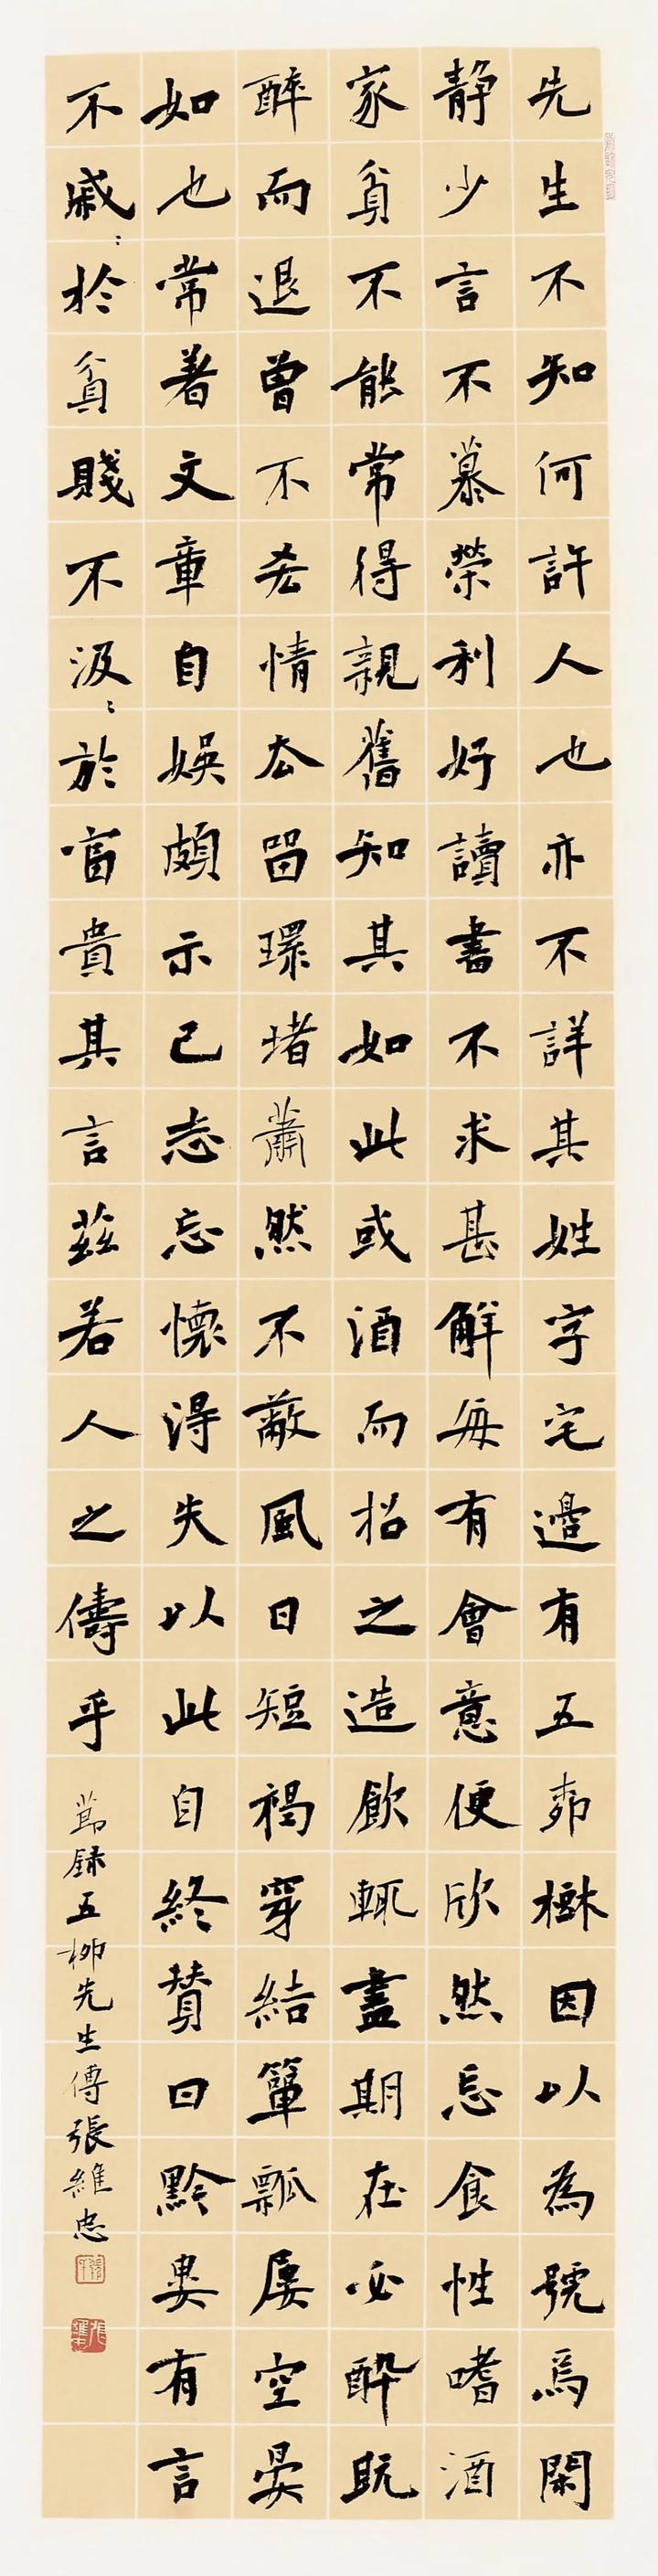 先生不知何許人也亦不詳其姓字宅邊有五柳樹因以為號焉閑
静少言不慕榮利好讀書不求甚解每有會意便欣然忘食性嗜酒
家貧不能常得親舊知其如此或酒而招之造飲輒盡期在必醉既
醉而退曾不吝情去留環堵蕭然不蔽風日短褐穿結簞瓢屢空晏
如也常著文章自娛頗示己志忘懷得失以此自終贊曰黔婁有言
不戚〻於貧賤不汲〻於富貴其言茲若人之儔乎
節録五柳先生傳張維忠